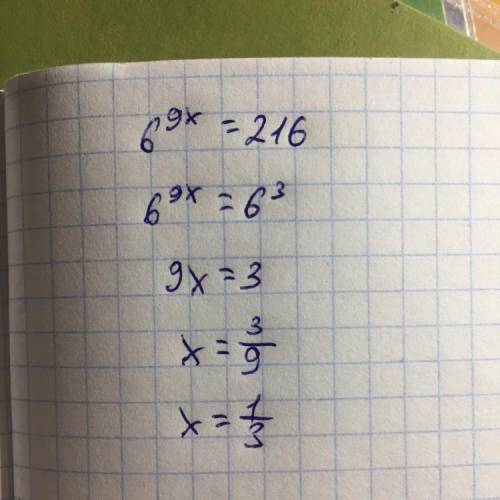 6^{9x} = 216
6^{9x} = 6^3
9x = 3
x = 3/9
x = 1/3